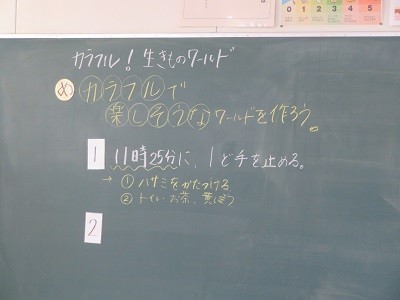 カラフル！生きものワールド
め カラフルで
楽しそうなワールドを作ろう。
1 11時25分に、1ど手を止める。
→ ① ハサミをかたづける
② トイレ・お茶、黄ぼう
2